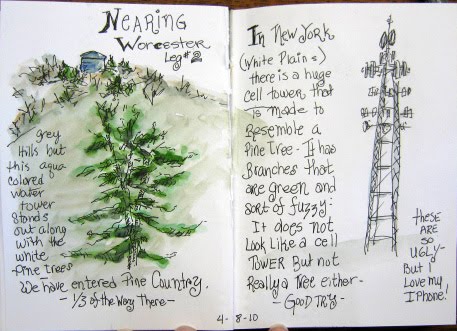 Nearing
Worcester
Leg #2
grey
Hills but
this aqua
colored
water
tower
stands
out along
with the
white
pine trees
We have entered Pine Country.
- 1/3 of the Way There -
In New York
(White Plains)
there is a huge
cell tower that
is made to
Resemble a
Pine Tree. It has
Branches that
are green and
sort of fuzzy.
It does not
Look Like a cell
Tower But not
Really a Tree either-
- Good Try -
these
ARE
so
UGLY-
But I
Love my
I Phone!
4-8-10